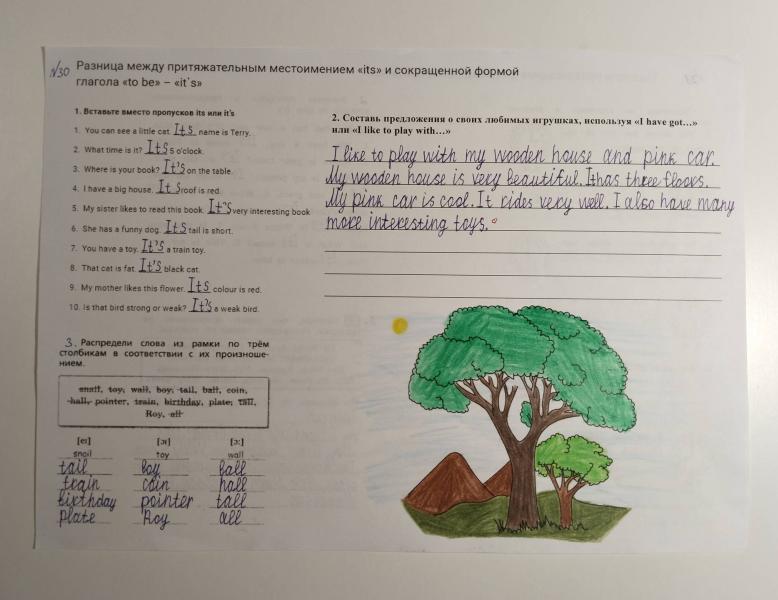 №30 Разница между притяжательным местоимением «its» и сокращенной формой
глагола «to be» – «it`s»
1. Вставьте вместо пропусков its или it's
1. You can see a little cat. Its name is Terry.
2. What time is it? Its 5 o'clock.
3. Where is your book? It's on the table.
4. I have a big house. Its roof is red.
5. My sister likes to read this book. It's very interesting book
6. She has a funny dog. Its tail is short.
7. You have a toy. It's a train toy.
8. That cat is fat. It's black cat.
9. My mother likes this flower. Its colour is red.
10. Is that bird strong or weak? It's a weak bird.
3. Распредели слова из рамки по трём
столбикам в соответствии с их произноше-
нием.
snail, toy, wall, boy, tail, ball, coin,
hall, pointer, train, birthday, plate, tall,
Roy, all
[eɪ] [ɔɪ] [ɔ:]
snail toy wall
tail boy ball
train coin hall
birthday pointer tall
plate Roy all
2. Составь предложения о своих любимых игрушках, используя «I have got…»
или «I like to play with…»
I like to play with my wooden house and pink car.
My wooden house is very beautiful. It has three floors.
My pink car is cool. It rides very well. I also have many
more interesting toys.